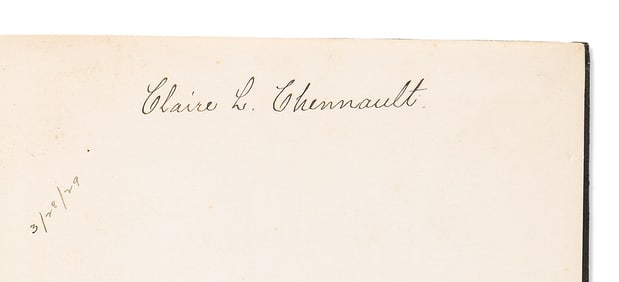 Claire L. Chennault.
3/29/29